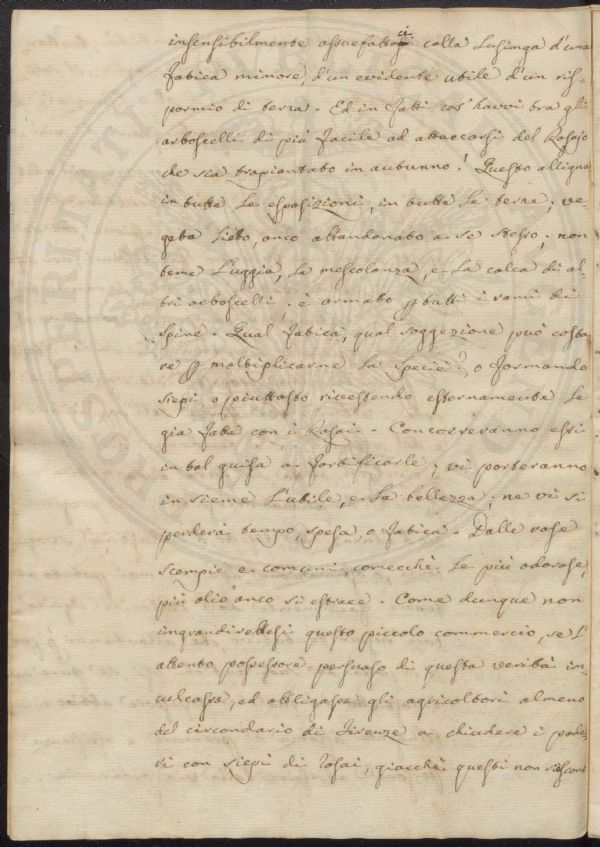 insensibilmente assuefattici colla lusinga d'una
fatica minore, d'un evidente utile d'un ris-
parmio di terra. Ed in fatti cos' havvi tra gli
arboscelli di più facile ad attaccarsi del Rosajo
che sia trapiantato in autunno! Questo alligna
in tutte le esposizioni, in tutte le terre; ve-
geta lieto, anco abbandonato a se stesso; non
teme l'uggia, la mescolanza, e la calca di al-
tri arboscelli; è armato p tutti i rami di
spine. Qual fatica, qual soggezione può costa-
re p moltiplicarne la specie?, o formando
siepi o piuttosto rivestendo esternamente le
gia fatte con i Rosai. Concorreranno essi
in tal guisa a fortificarle; vi porteranno
insieme l'utile, e la bellezza; ne vi si
perderà tempo, spesa o fatica. Dalle rose
scempie e comuni, comecchè le più odorose,
più olio anco si estrae. Come dunque non
ingrandirebbesi questo piccolo commercio, se l'
attento possessore persuaso di questa verità in-
culcasse, ed obbligasse gli agricoltori almeno
del circondario di Firenze a chiudere i pode-
ri con siepi di rosai, giacchè questi non riescono
PROSPERITATI